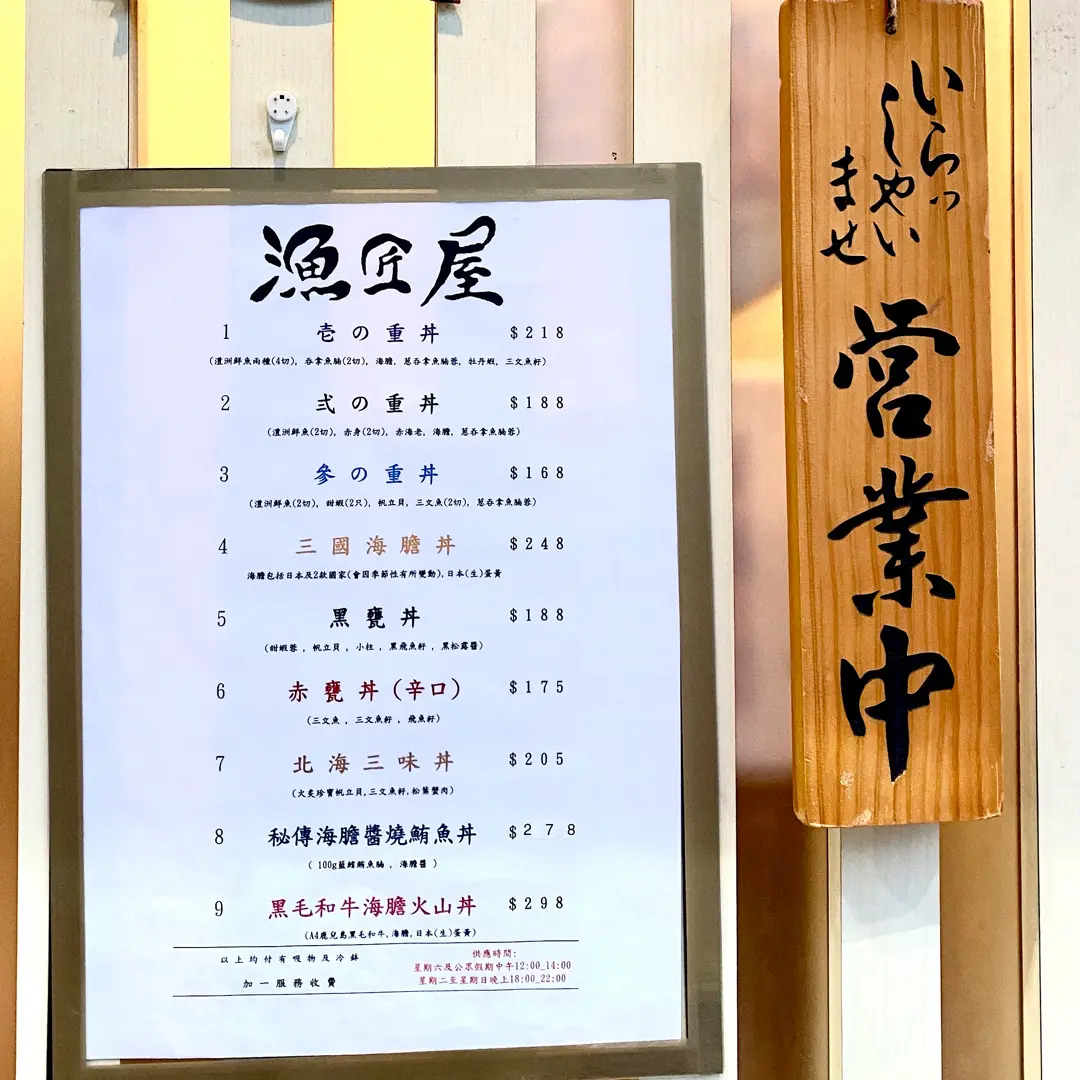 漁匠屋
1 壱の重丼 $218
(澶洲鮮魚兩種(4切), 吞拿魚腩(2切), 海膽, 葱吞拿魚腩蓉, 牡丹蝦, 三文魚籽)
2 弍の重丼 $188
(澶洲鮮魚(2切), 赤身(2切), 赤海老, 海膽, 葱吞拿魚腩蓉)
3 參の重丼 $168
(澶洲鮮魚(2切), 甜蝦(2只), 帆立貝, 三文魚(2切), 葱吞拿魚腩蓉)
4 三國海膽丼 $248
海膽包括日本及2款國家(會因季節性有所變動),日本(生)蛋黃
5 黒甕丼 $188
(甜蝦蓉 , 帆立貝 , 小柱 , 黑飛魚籽 , 黑松露醬)
6 赤甕丼(辛口) $175
(三文魚 , 三文魚籽 , 飛魚籽)
7 北海三味丼 $205
(火炙珍寶帆立貝,三文魚籽,松葉蟹肉)
8 秘傳海膽醬燒鮪魚丼 $278
( 100g藍鰭鮪魚腩 , 海膽醬 )
9 黒毛和牛海膽火山丼 $298
(A4鹿兒島黑毛和牛,海膽,日本(生)蛋黃)
以上均付有吸物及冷鉢
加一服務收費
供應時間:
星期六及公眾假期中午12:00_14:00
星期二至星期日晚上18:00_22:00
いらっ
しゃい
ませ
営業中